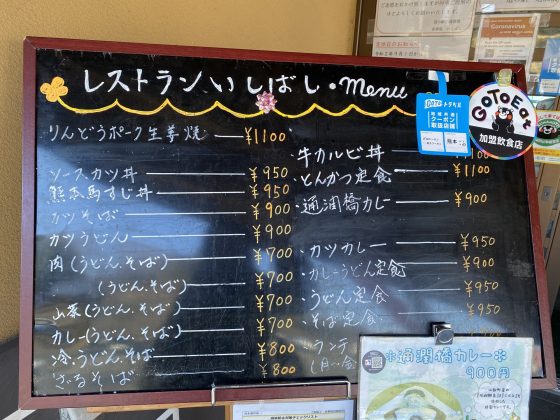 レストランいしばし・menu
りんどうポーク生姜焼 ¥1100
ソースカツ丼 ¥950
熊本馬すじ丼 ¥950
カツそば ¥900
カツうどん ¥900
肉(うどん.そば) ¥700
(うどん.そば) ¥700
山菜(うどん.そば) ¥700
カレー(うどん.そば) ¥700
冷.うどん.そば ¥800
ざるそば ¥800
・牛カルビ丼 ¥1100
・とんかつ定食 ¥1100
・通潤橋カレー ¥900
・カツカレー ¥950
・カレーうどん定食 ¥900
・うどん定食 ¥950
・そば定食
・ランチ
(月〜金)
GoToトラベル
地域共通
クーポン
取扱店舗
熊本
GoToEat
加盟飲食店
Coronavirus
通潤橋カレー
900円